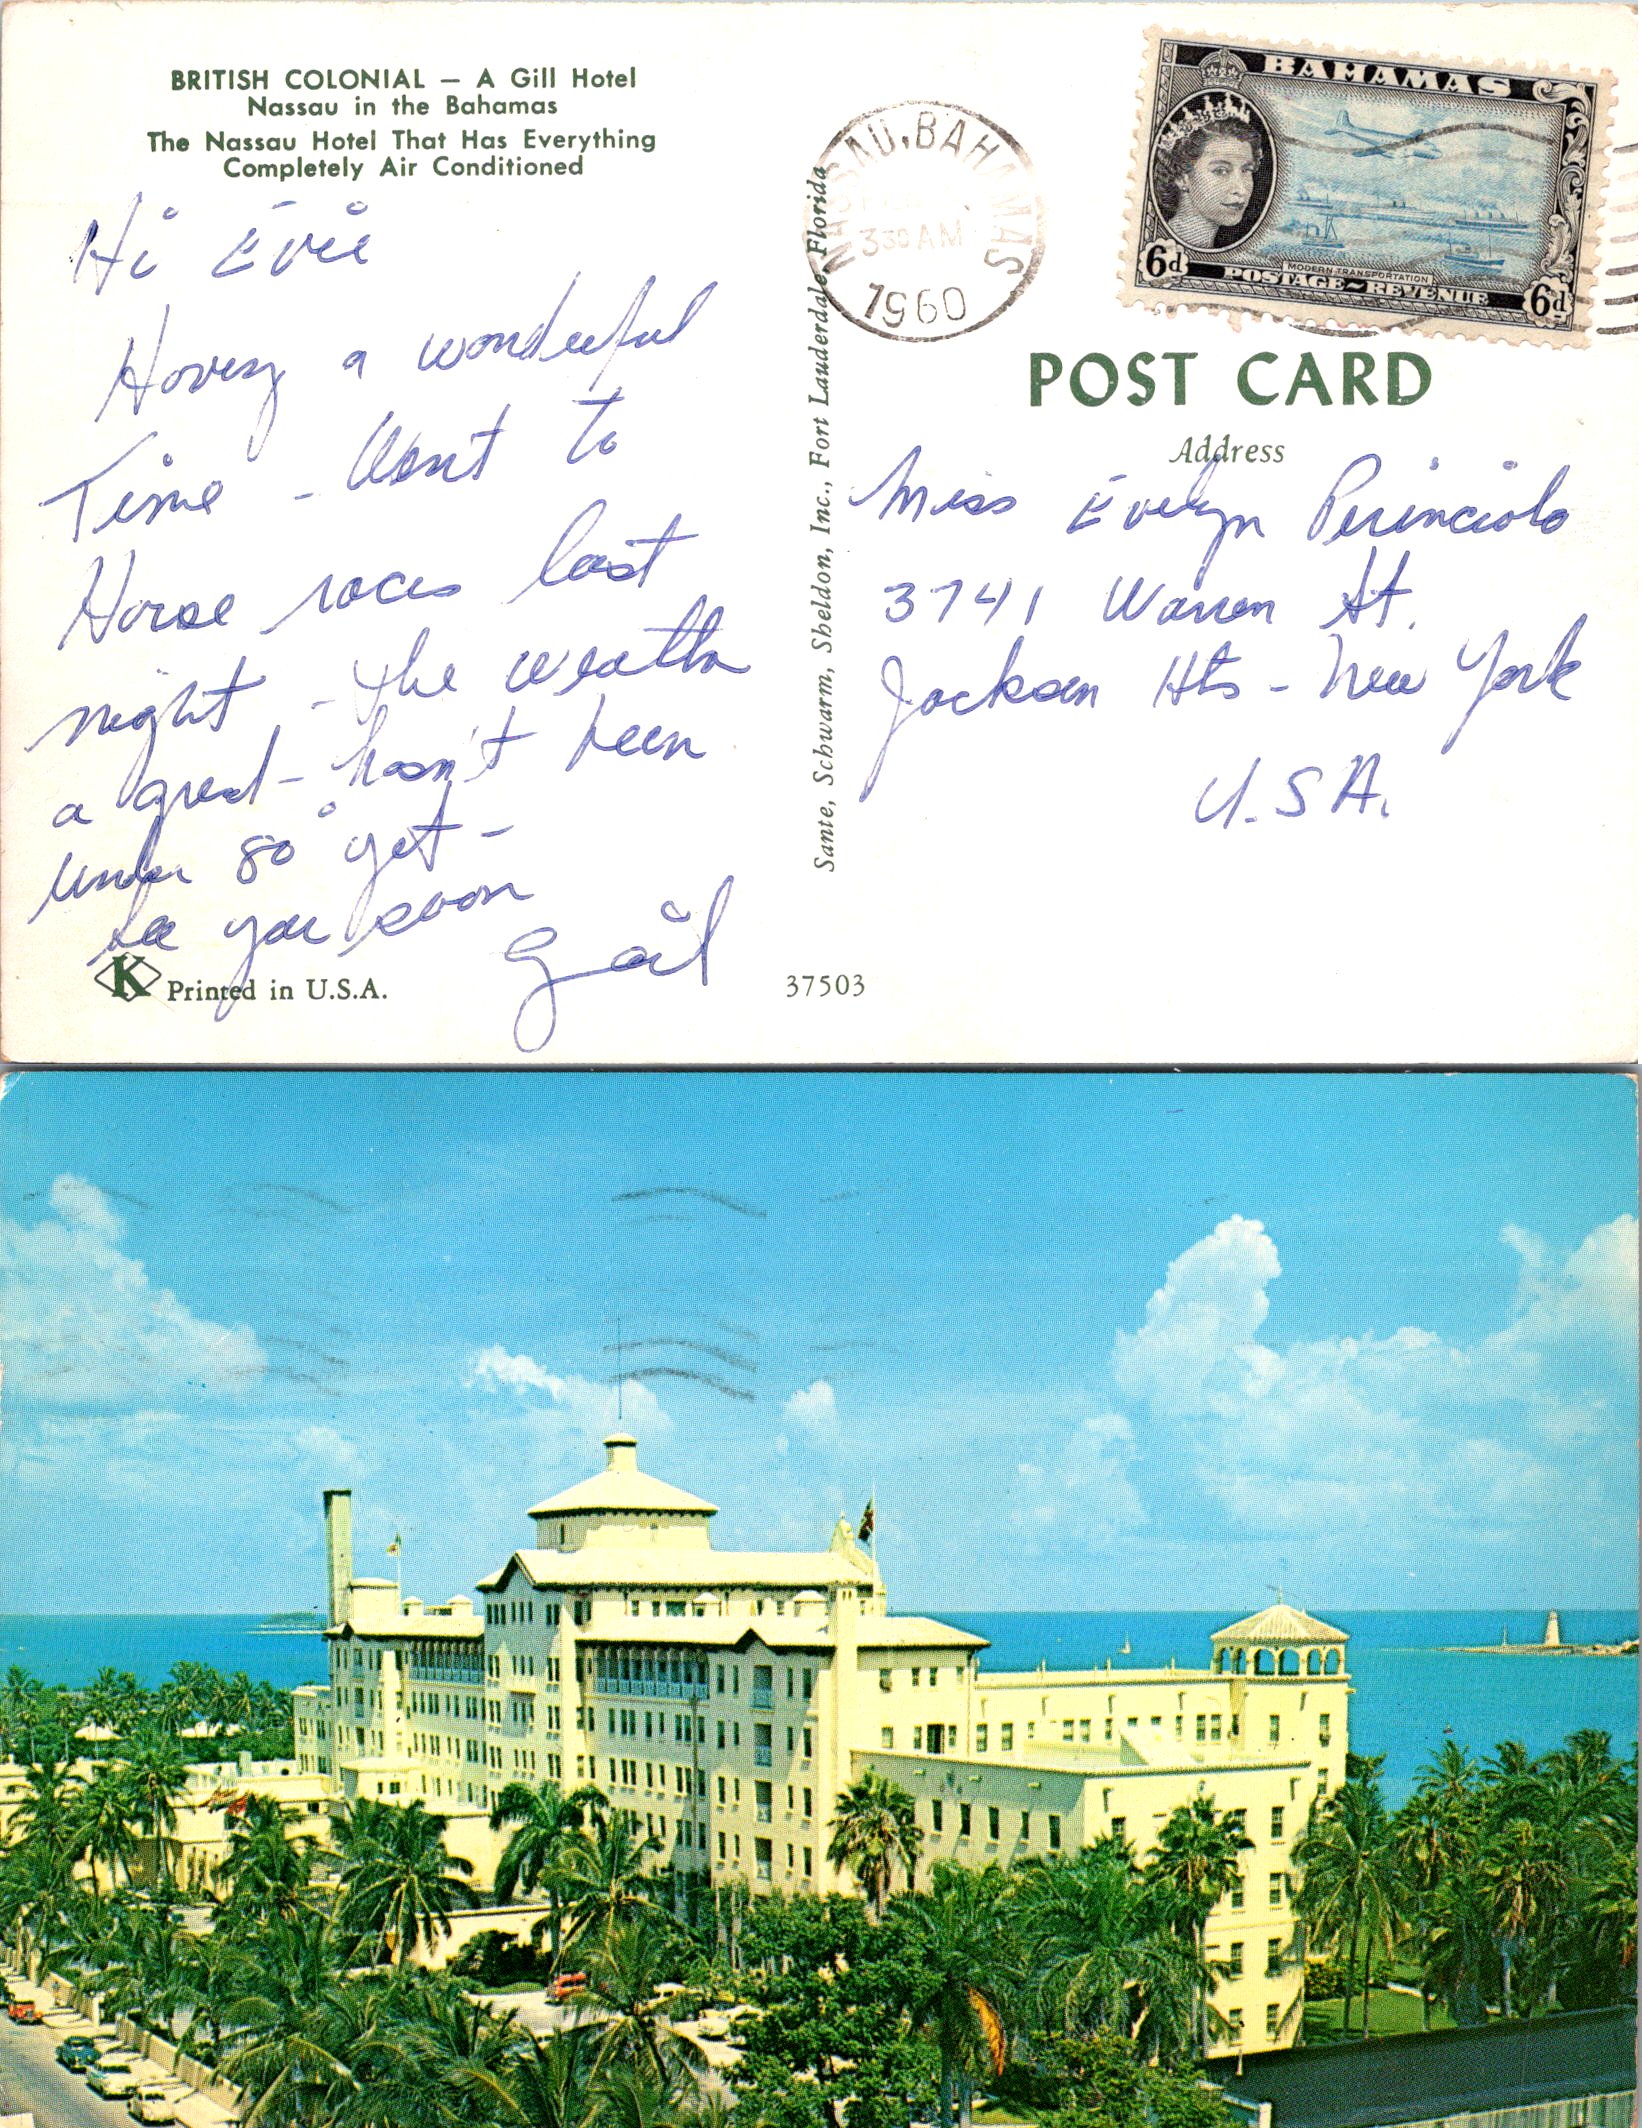 BRITISH COLONIAL — A Gill Hotel
Nassau in the Bahamas
The Nassau Hotel That Has Everything
Completely Air Conditioned
Hi Evie
Having a wonderful
Time - Went to
Horse races last
night - the weather
a great - hasn't been
under 80° yet -
See you soon
Gail
K Printed in U.S.A.
37503
Sante, Schwarm, Sheldon, Inc., Fort Lauderdale, Florida
NASSAU, BAHAMAS
3 30 AM
1960
BAHAMAS
6d
MODERN TRANSPORTATION
POSTAGE ~ REVENUE
6d
POST CARD
Address
Miss Evelyn Perinciolo
3741 Warren St.
Jackson Hts - New York
U.S.A.